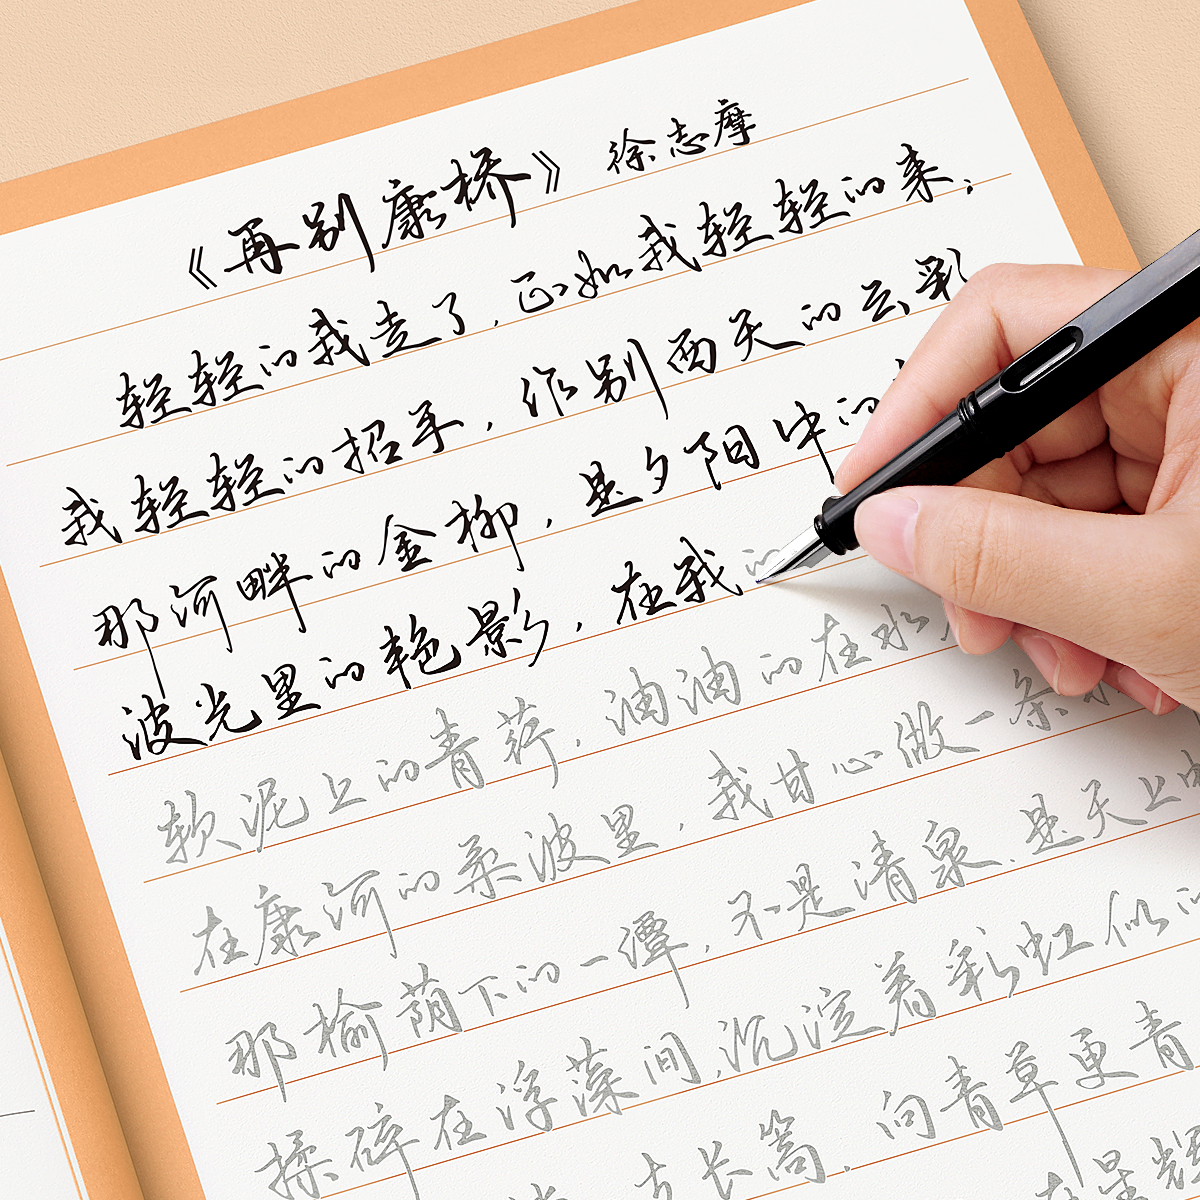 《再别康桥》 徐志摩
轻轻的我走了,正如我轻轻的来;
我轻轻的招手,作别西天的云彩
那河畔的金柳,是夕阳中的
波光里的艳影,在我的
软泥上的青荇,油油的在水
在康河的柔波里,我甘心做一条
那榆荫下的一潭,不是清泉,是天上
揉碎在浮藻间,沉淀着彩虹似的
长篙,向青草更青
星辉